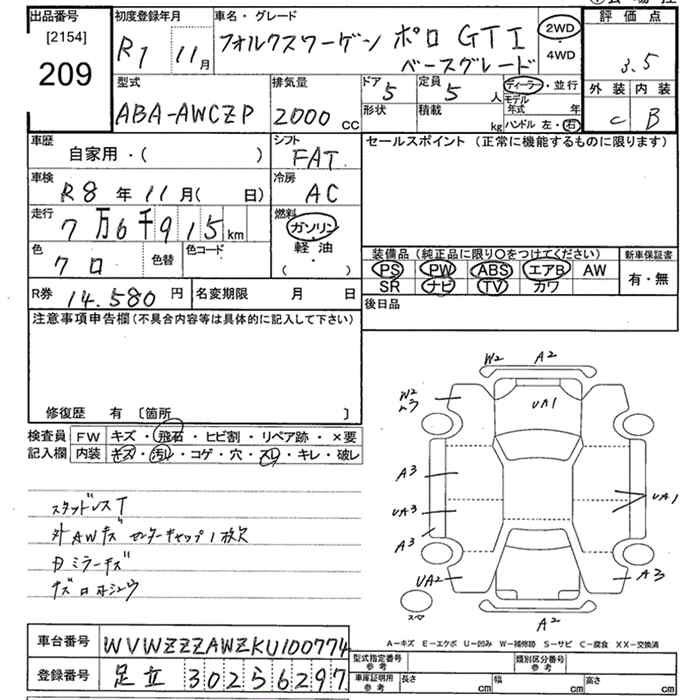 出品番号
[2154]
209
初度登録年月
R1 11月
車名・グレード
フォルクスワーゲン ポロ GTI
ベースグレード
2WD
・
4WD
評価点
3.5
外装 内装
C B
型式
ABA-AWCZP
排気量
2000 CC
ドア 5
定員 5 人
形状
積載 kg
ディーラー・並行
モデル年式 年
ハンドル 左・右
車歴
自家用・( )
シフト
FAT
セールスポイント (正常に機能するものに限ります)
車検
R8年11月( 日)
冷房
AC
走行
7万6千915km
燃料
ガソリン
軽油
( )
色
クロ
色替
色コード
装備品 (純正品に限り○をつけてください)
新車保証書
PS PW ABS エアB AW
有・無
SR ナビ TV カワ
R券 14.580円
名変期限 月 日
後日品
注意事項申告欄(不具合内容等は具体的に記入して下さい)
修復歴 有 〔箇所 〕
検査員 FW キズ・飛石・ヒビ割・リペア跡・×要
記入欄 内装 キズ・汚れ・コゲ・穴・スレ・キレ・破レ
W2 A2
W2
UA1
A3
UA3
A3
UA1
UA2
A3
A2
スタッドレスT
外AWキズ センターキャップ1枚欠
ミラーキズ
A－キズ E－エクボ U－凹み W－補修跡 S－サビ C－腐食 XX－交換済
車台番号 WVWZZZAWZKU100774
登録番号 足立302561297
型式指定番号 参考
類別区分番号 参考
車庫証明用 参考 長さ cm 幅 cm 高さ cm